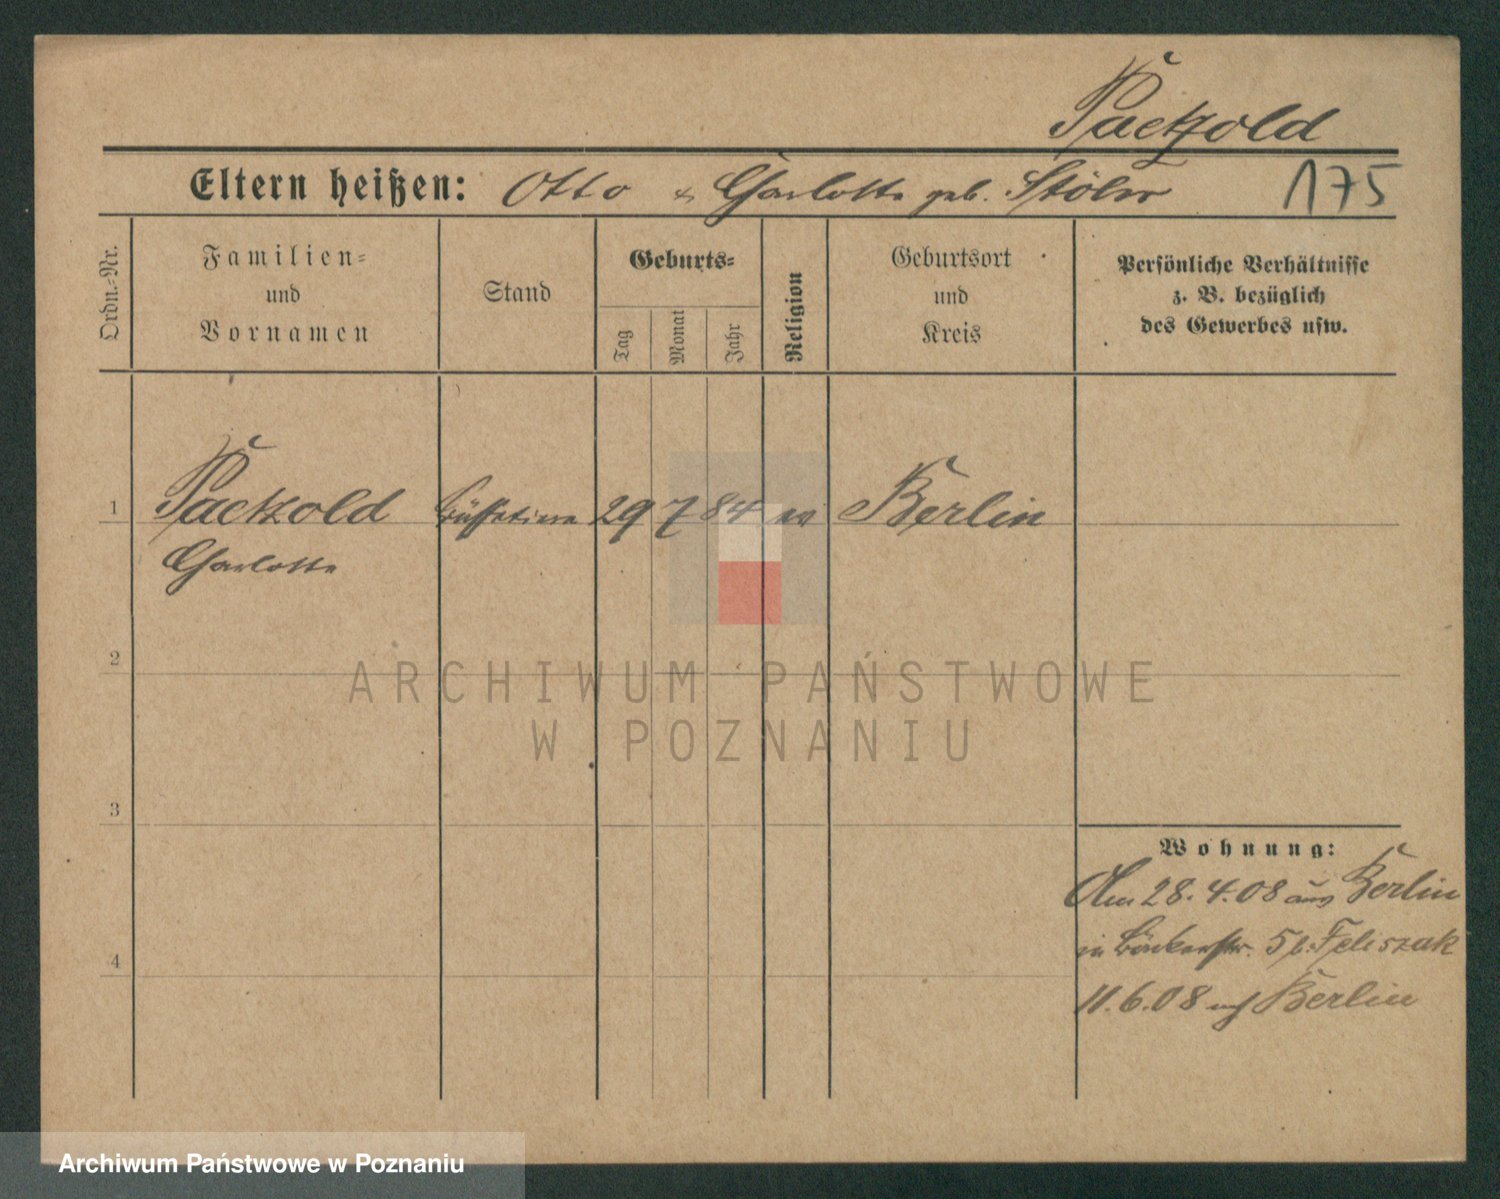 Paetzold
Eltern heißen: Otto & Charlotte geb. Stöhr
175
Ordn.-Nr.
Familien-
und
Vornamen
Stand
Geburts-
Tag
Monat
Jahr
Religion
Geburtsort
und
Kreis
Persönliche Verhältnisse
z. B. bezüglich
des Gewerbes usw.
1 Paetzold Büffetiere 29 7 84 ev Berlin
Charlotte
2
3
4
Wohnung:
Am 28.4.08 aus Berlin
in Bäckerstr. 5 b. Feliszak
11.6.08 nach Berlin
ARCHIWUM PAŃSTWOWE
W POZNANIU
Archiwum Państwowe w Poznaniu